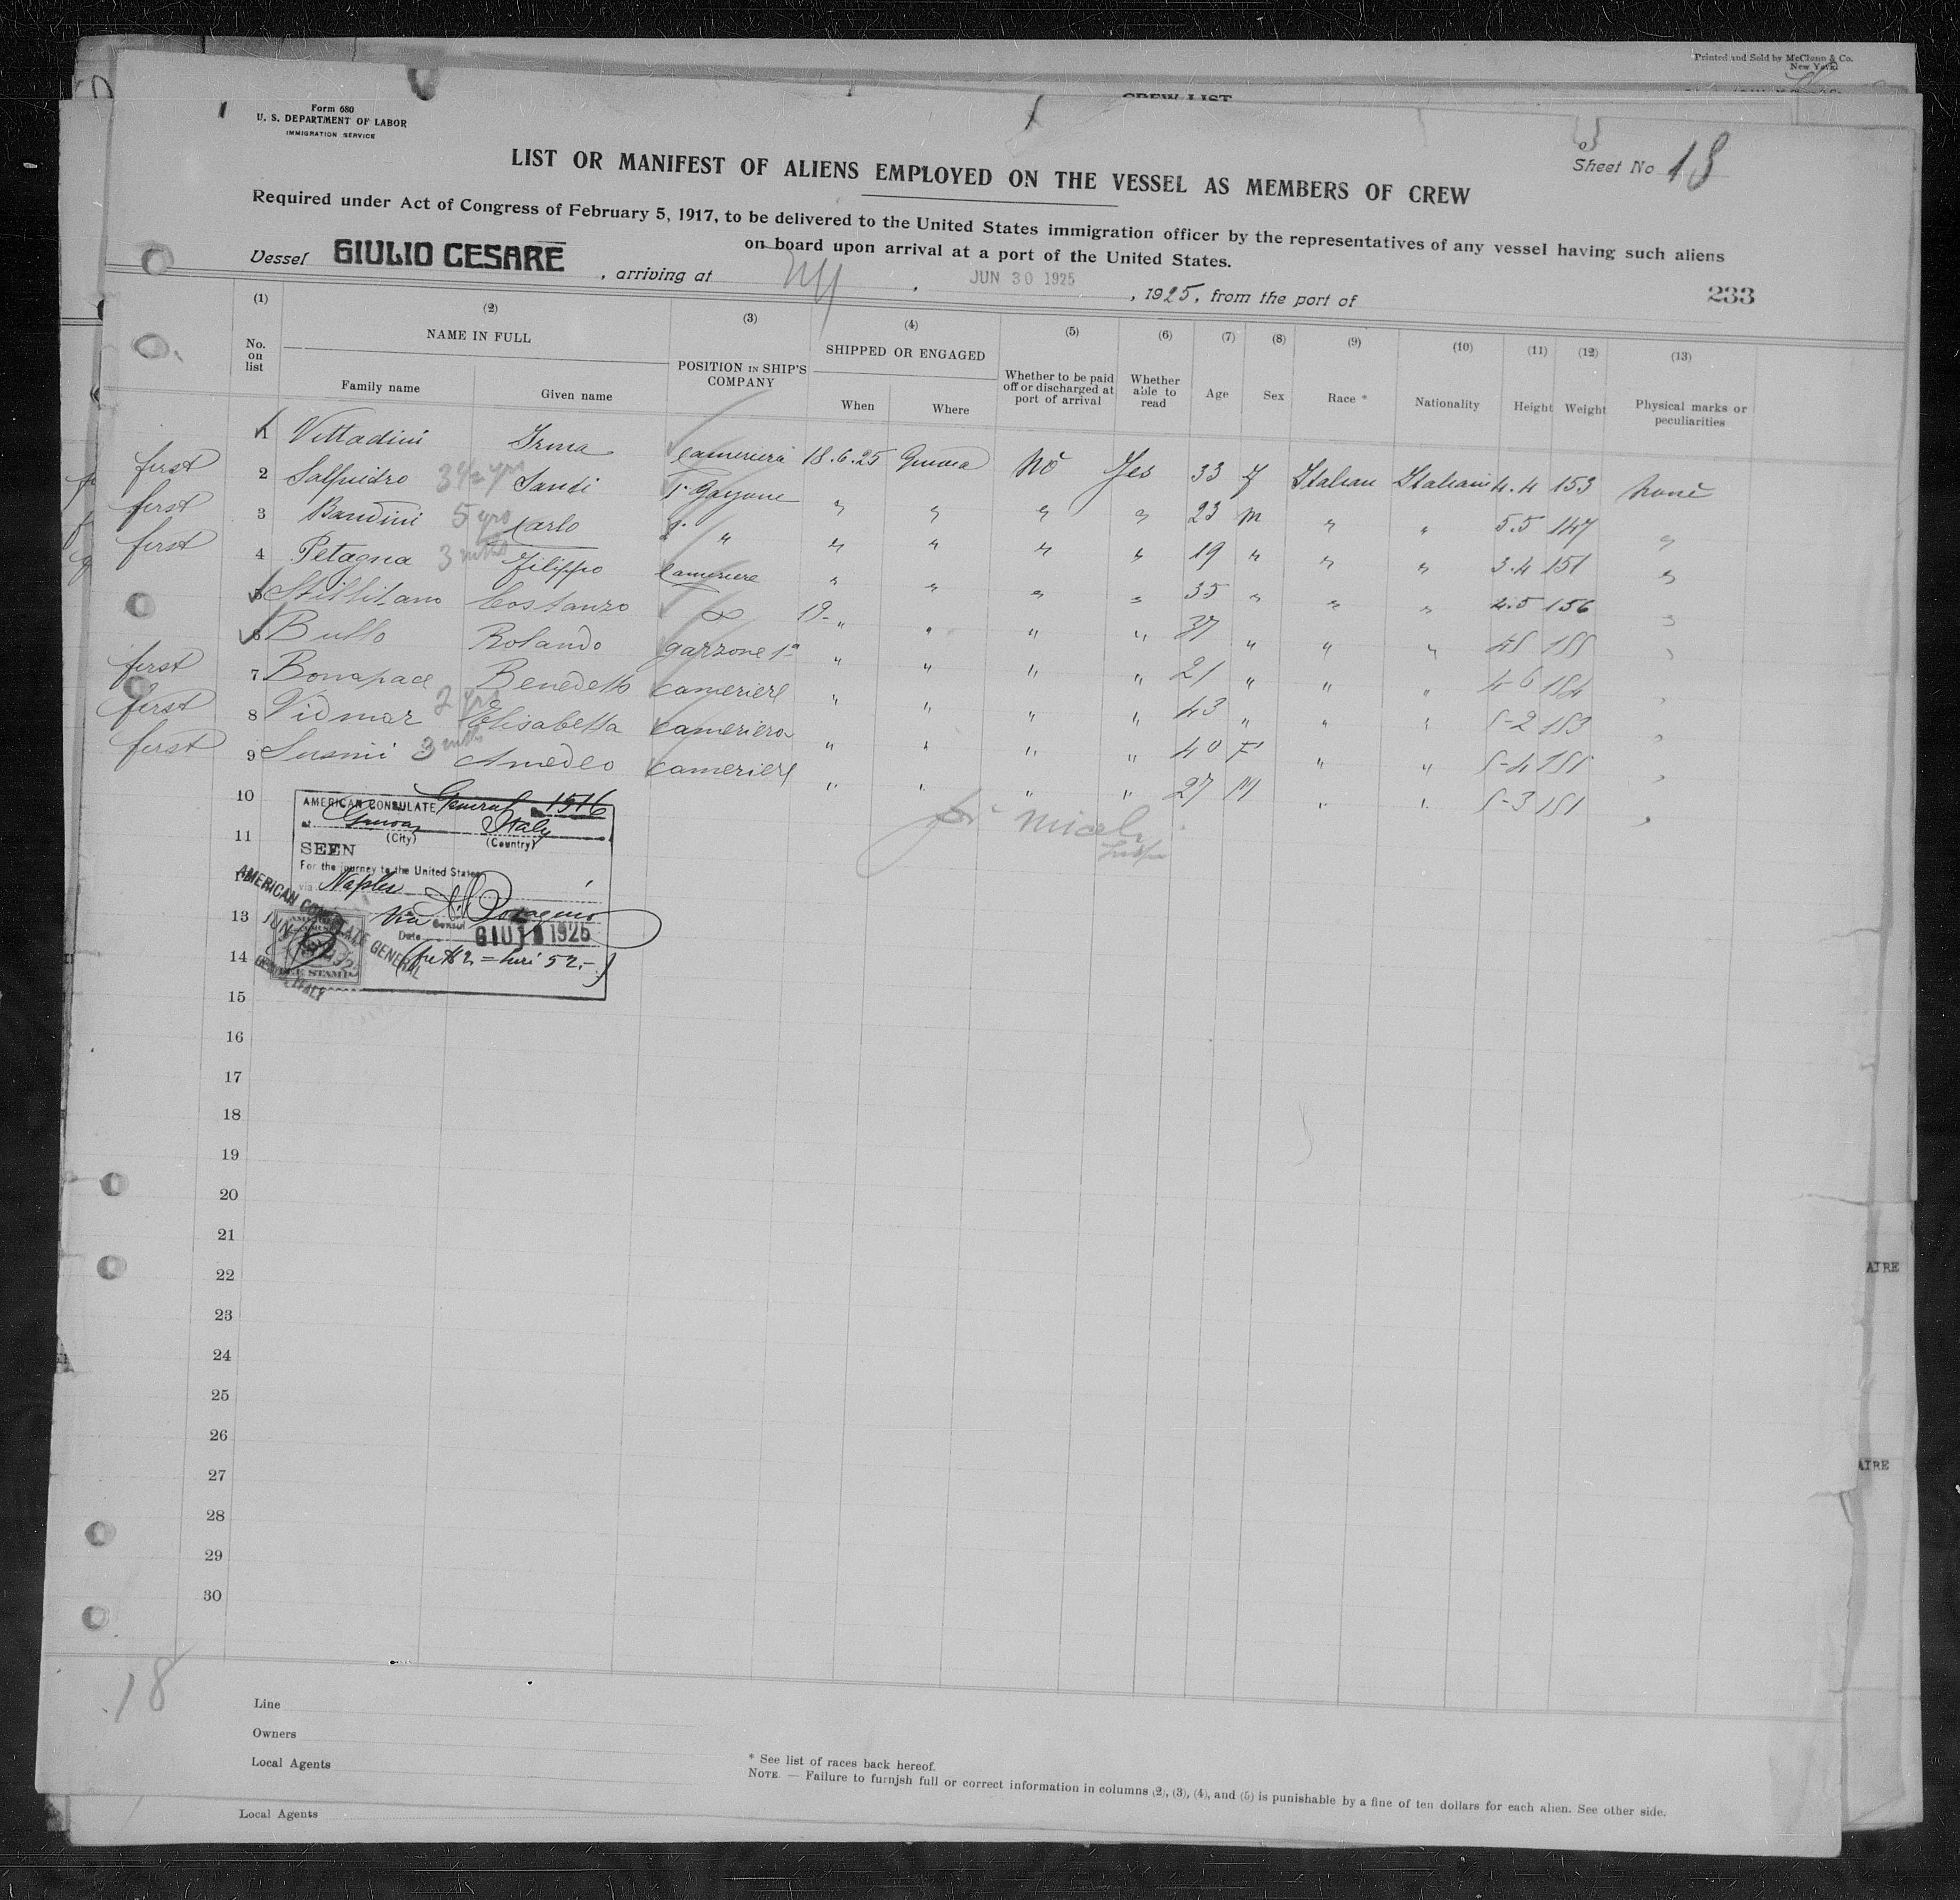 Printed and Sold by McClunn & Co.
New York
CREW LIST
Form 680
U. S. DEPARTMENT OF LABOR
IMMIGRATION SERVICE
Sheet No 18
LIST OR MANIFEST OF ALIENS EMPLOYED ON THE VESSEL AS MEMBERS OF CREW
Required under Act of Congress of February 5, 1917, to be delivered to the United States immigration officer by the representatives of any vessel having such aliens
on board upon arrival at a port of the United States.
Vessel GIULIO CESARE, arriving at NY, JUN 30 1925, 1925, from the port of
233
(1) (2) (3) (4) (5) (6) (7) (8) (9) (10) (11) (12) (13)
No. on list NAME IN FULL POSITION IN SHIP'S COMPANY SHIPPED OR ENGAGED Whether to be paid off or discharged at port of arrival Whether able to read Age Sex Race * Nationality Height Weight Physical marks or peculiarities
Family name Given name When Where
1 Vittadini Irma Cameriera 18.6.25 Genova No Yes 33 F Italian Italian 4.4 153 None
first 2 3 1/2 yrs Santi " " " " 23 m " " 5.5 147 "
first 3 Bandini 5 yrs Carlo " " " " " 19 " " " 3.4 151 "
first 4 Petagna 3 mths Filippo Cameriere " " " " 35 " " " 4.5 156 "
5 Stillitano Costanzo 19- " " " " 37 " " "
6 Bullo Rolando garzone 1a " " " " 21 " " "
first 7 Bonapace Benedetto cameriere " " " " 43 " " "
first 8 Vidmar 2 yrs Elisabetta cameriera " " " " 40 F " "
first 9 Susmi 3 mths Amedeo cameriere " " " " 27 M " "
10
11
12
13
14
15
16
17
18
19
20
21
22
23
24
25
26
27
28
29
30
AMERICAN CONSULATE General 1516
at Genoa Italy
(City) (Country)
SEEN
For the journey to the United States
via Naples
Consul
Date GIU 1925
(fee $2 = Lire 52.-)
AMERICAN CONSULATE GENERAL
GENOA, ITALY
FEE STAMP
AIRE
AIRE
18
Line
Owners
Local Agents
* See list of races back hereof.
NOTE. — Failure to furnish full or correct information in columns (2), (3), (4), and (5) is punishable by a fine of ten dollars for each alien. See other side.
Local Agents